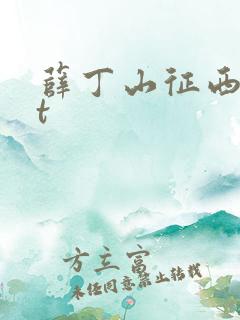 薛丁山征西t
t
方立富
未经同意禁止转载